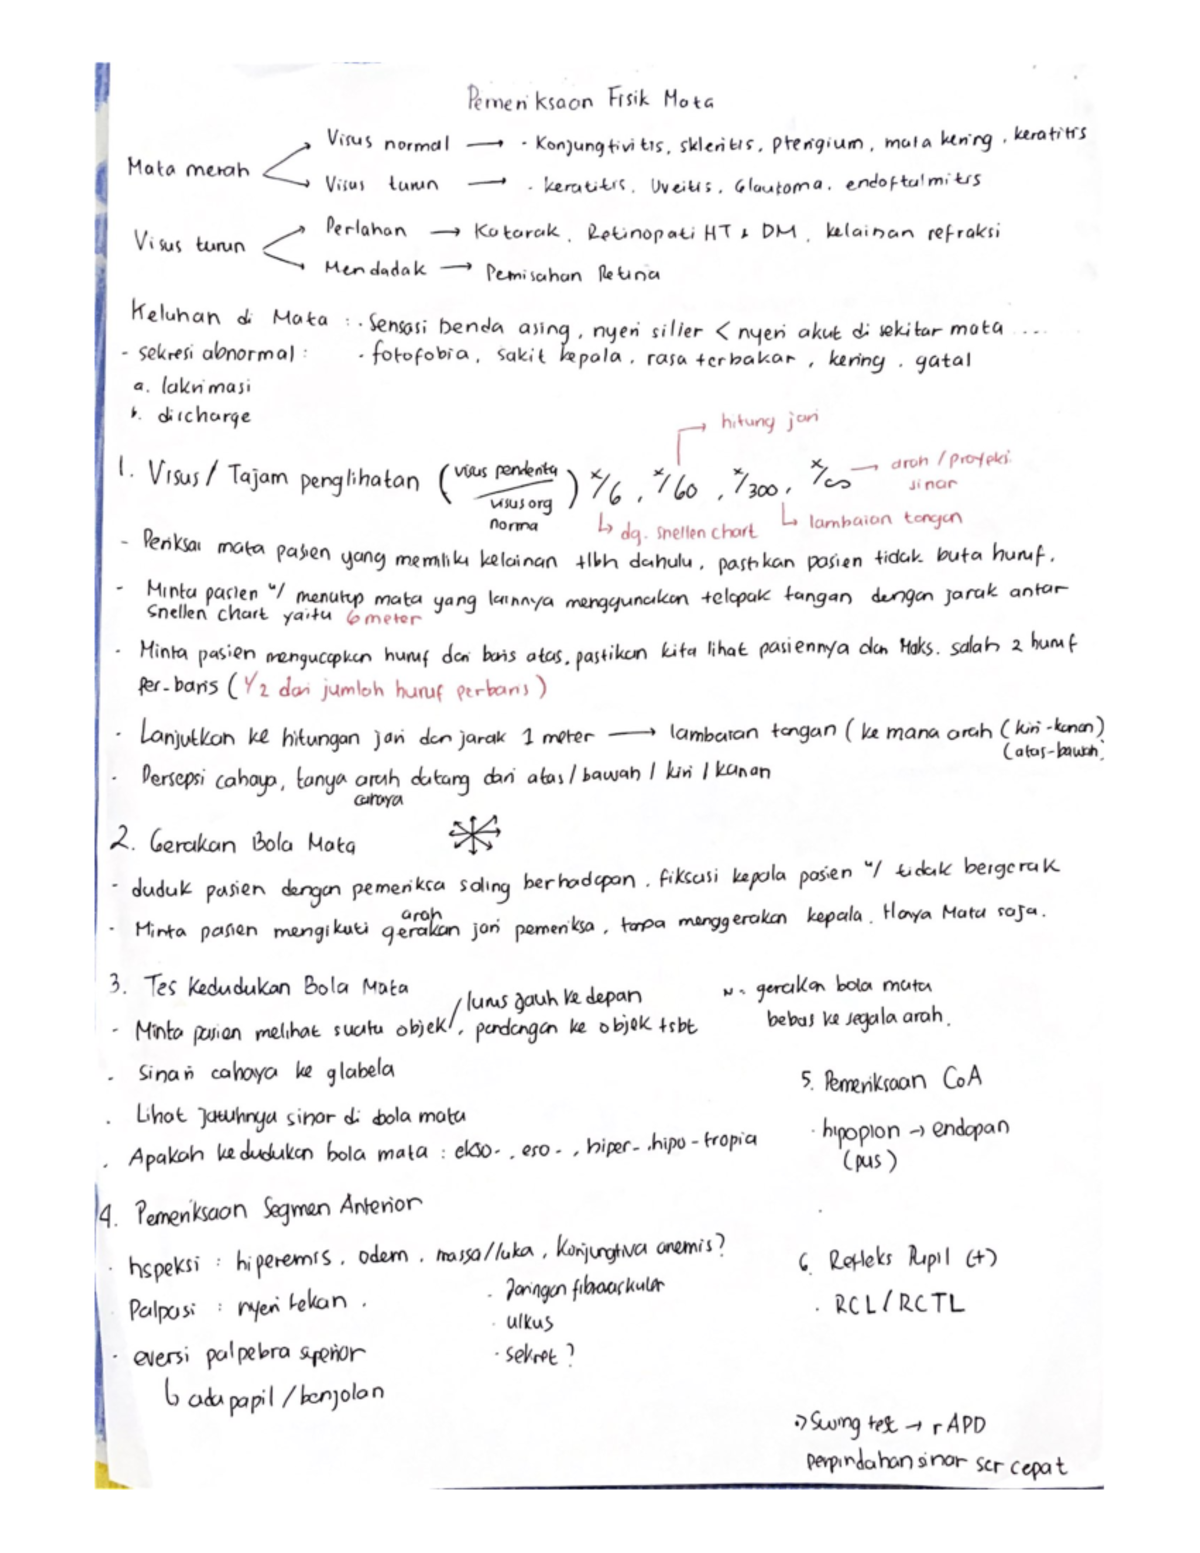 Pemeriksaan Fisik Mata
Mata merah
Visus normal → · Konjungtivitis, skleritis, pterigium, mata kering, keratitis
Visus turun → · keratitis, Uveitis, Glaukoma, endoftalmitis
Visus turun
Perlahan → Katarak, Retinopati HT & DM, kelainan refraksi
Mendadak → Pemisahan Retina
Keluhan di Mata : · Sensasi benda asing, nyeri silier < nyeri akut di sekitar mata ....
- sekresi abnormal : · fotofobia, sakit kepala, rasa terbakar, kering, gatal
a. lakrimasi
b. discharge
hitung jari
1. Visus / Tajam penglihatan (visus penderita / visus org norma) x/6, x/60, x/300, x/∞ → arah / proyeksi sinar
↳ dg. snellen chart
↳ lambaian tangan
- Periksa mata pasien yang memiliki kelainan tlbh dahulu, pastikan pasien tidak buta huruf.
- Minta pasien u/ menutup mata yang lainnya menggunakan telapak tangan dengan jarak antar
snellen chart yaitu 6 meter
· Minta pasien mengucapkan huruf dari baris atas, pastikan kita lihat pasiennya dan Maks. salah 2 huruf
per-baris (1/2 dari jumlah huruf perbaris)
· Lanjutkan ke hitungan jari dan jarak 1 meter → lambaian tangan (ke mana arah (kiri-kanan)
(atas-bawah)
· Persepsi cahaya, tanya arah datang dari atas / bawah / kiri / kanan
cahaya
2. Gerakan Bola Mata
- duduk pasien dengan pemeriksa saling berhadapan, fiksasi kepala pasien u/ tidak bergerak
arah
· Minta pasien mengikuti gerakan jari pemeriksa, tanpa menggerakan kepala. Hanya Mata saja.
3. Tes Kedudukan Bola Mata
/ lurus jauh ke depan
- Minta pasien melihat suatu objek, pandangan ke objek tsbt
N = gerakan bola mata
bebas ke segala arah.
· Sinari cahaya ke glabela
· Lihat jatuhnya sinar di bola mata
· Apakah kedudukan bola mata : ekso-, eso-, hiper-, hipo-tropia
5. Pemeriksaan CoA
· hipopion → endapan
(pus)
4. Pemeriksaan Segmen Anterior
· Inspeksi : hiperemis, odem, massa//luka, Konjungtiva anemis?
· Jaringan fibrovaskular
Palpasi : nyeri tekan.
· ulkus
· eversi palpebra superior
· sekret?
↳ ada papil / benjolan
6. Refleks Pupil (+)
· RCL / RCTL
Swing test → rAPD
perpindahan sinar scr cepat